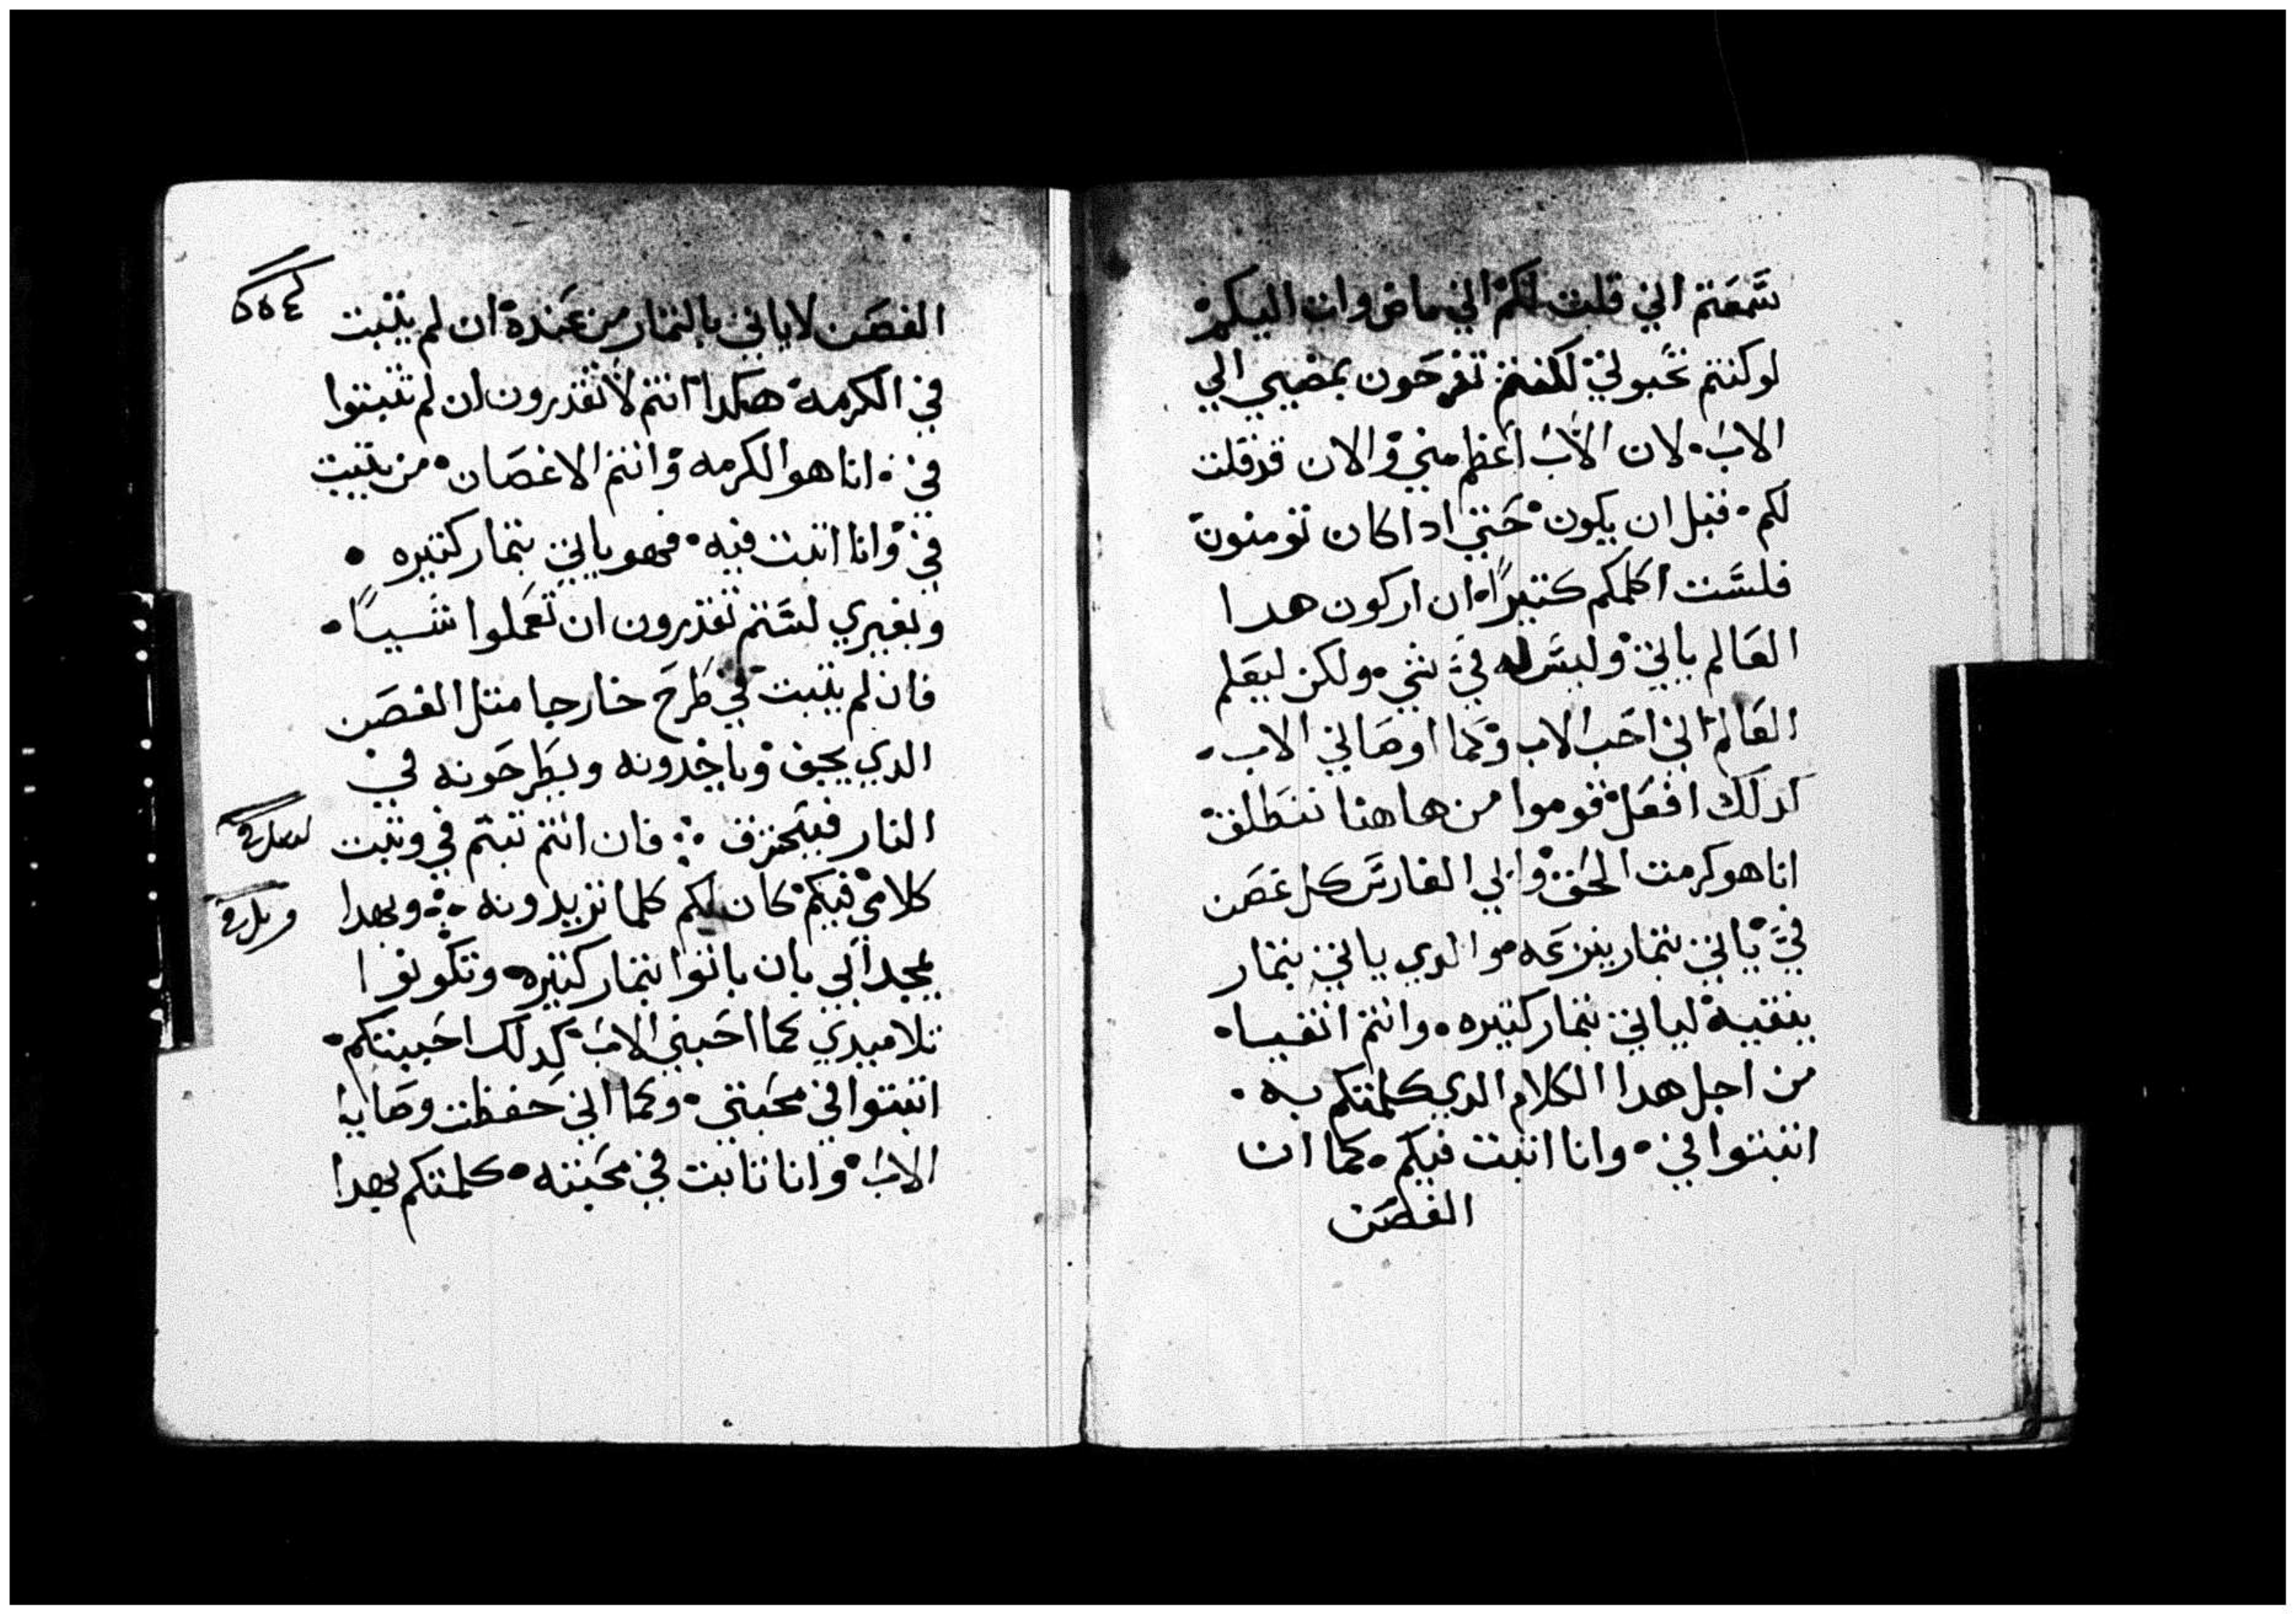 سمعتم اني قلت لكم اني ماض وات اليكم
لوكنتم تحبوني لكنتم تفرحون بمضيي الي
الاب. لان الاب اعظم مني والان قد قلت
لكم. قبل ان يكون حتي ادا كان تومنون
فلست اكلمكم كتيرًا. ان اركون هدا
العالم ياتي وليس له في شي. ولكن ليعلم
العالم اني احب الاب وكما اوصاني الاب.
كدلك افعل قوموا من هاهنا ننطلق
انا هو كرمت الحق وابي الغارس كل غصن
في ياتي بتمار ينزعه والدي ياتي بتمار
ينقيه لياتي بتمار كتيره. وانتم انقيا.
من اجل هدا الكلام الدي كلمتكم به.
اتبتوا في. وانا اتبت فيكم. كما ان
الغصن
الغصن لاياتي بالتمار من عنده ان لم يتبت
في الكرمه هكدا انتم لا تقدرون ان لم تتبتوا
في. انا هو الكرمه وانتم الاغصان. من يتبت
في وانا اتبت فيه. فهو ياتي بتمار كتيره.
وبغيري لستم تقدرون ان تعملوا شيياً.
فان لم يتبت في طرح خارجا متل الغصن
الدي يجف وياخدونه ويطرحونه في
النار فيحترق ؞ فان انتم تبتم في وتبت
كلامي فيكم كان لكم كلما تريدونه ؞ وبهدا
يمجد ابي بان ياتوا بتمار كتيره وتكونوا
تلاميدي كما احبني الاب كدلك احببتكم.
اتبتوا في محبتي. وكما اني حفظت وصايا
الاب وانا تابت في محبته. كلمتكم بهدا